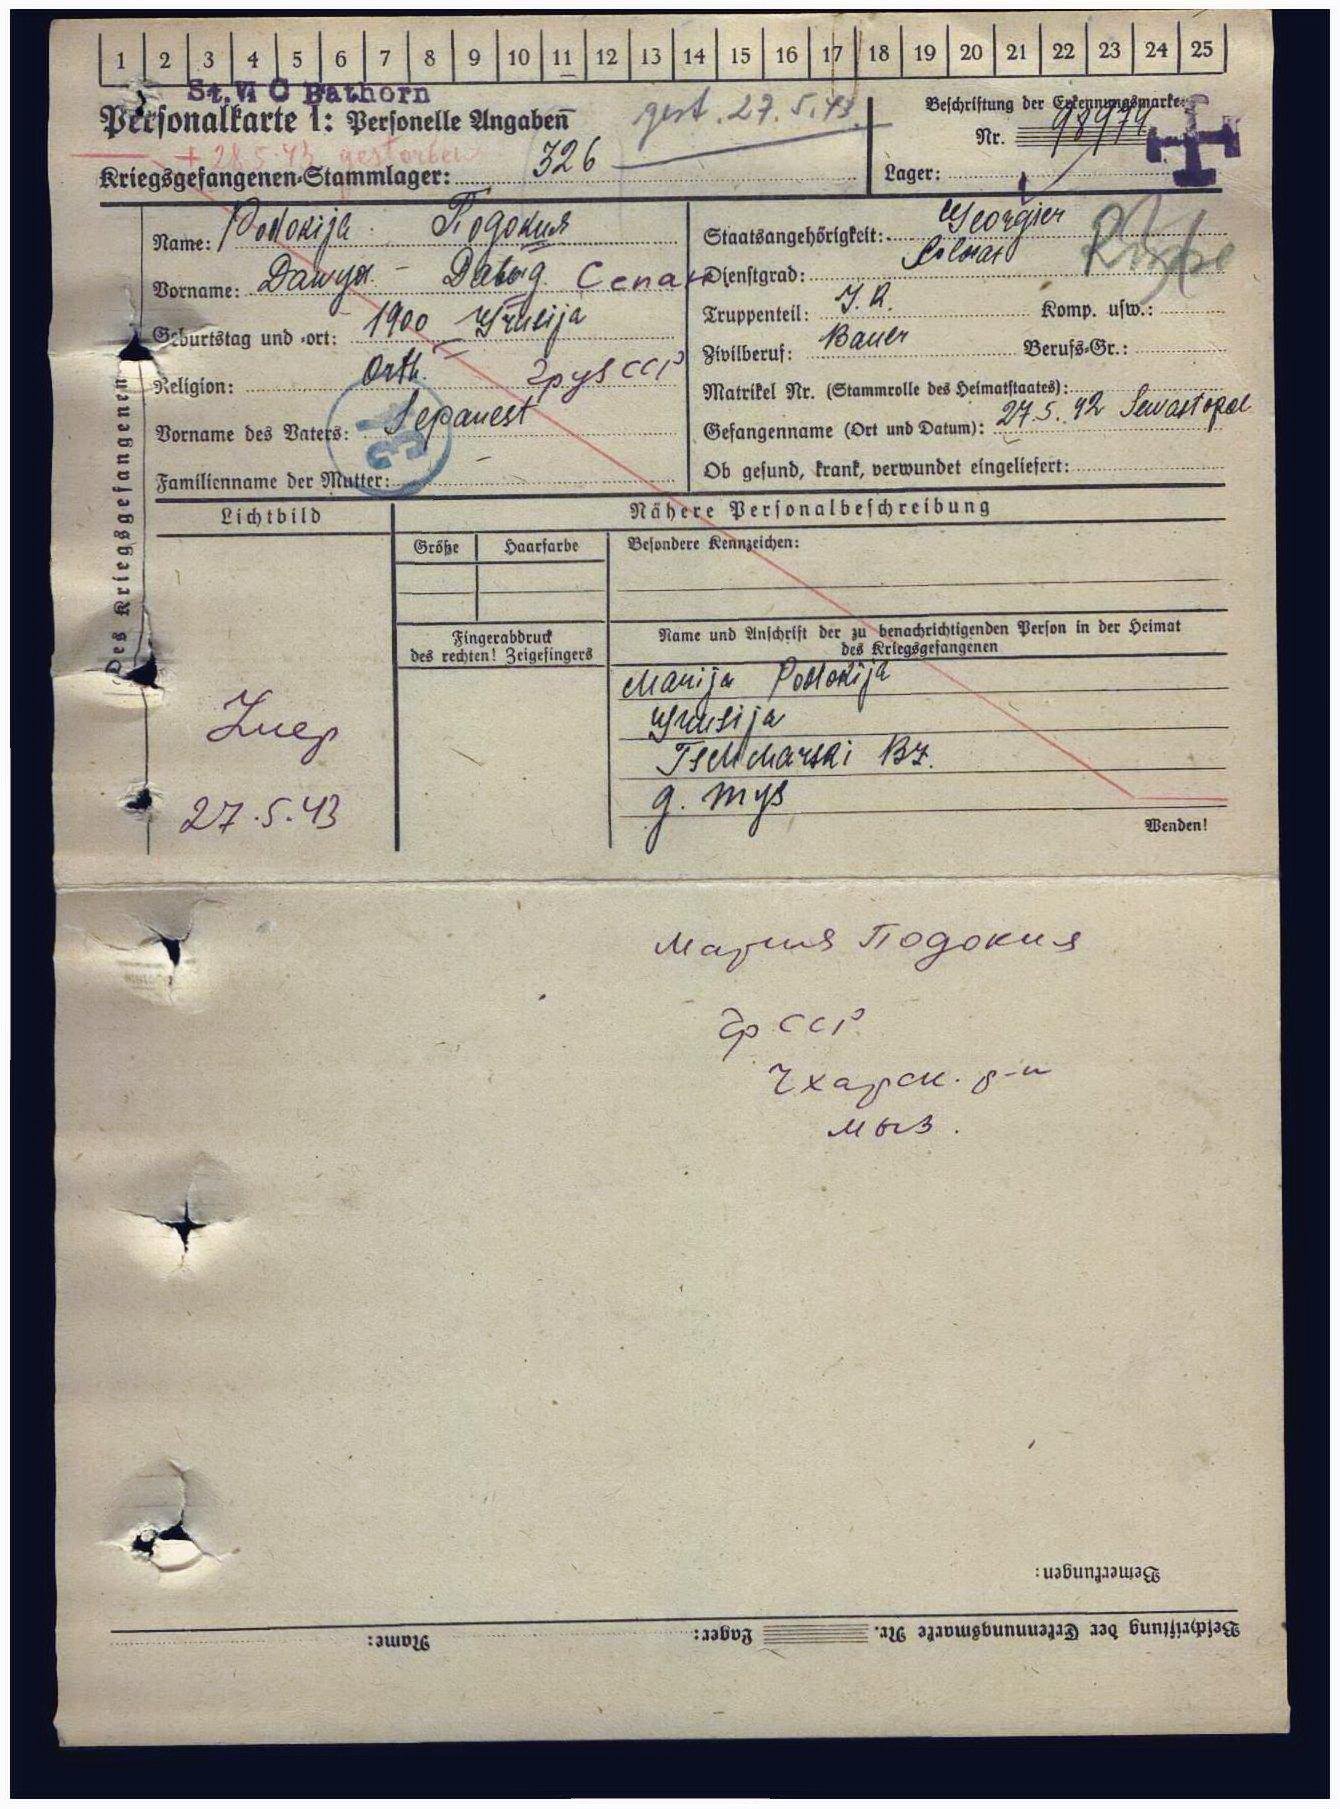 1 2 3 4 5 6 7 8 9 10 11 12 13 14 15 16 17 18 19 20 21 22 23 24 25
St. VI C Bathorn
Personalkarte 1: Personelle Angaben
gest. 27.5.43.
Beschriftung der Erkennungsmarke
Nr. 98974
+ 28.5.43 gestorben
Kriegsgefangenen-Stammlager: 326
Lager:
Des Kriegsgefangenen
Name: Podokija Подокия
Vorname: Dawyd - Давыд
Geburtstag und -ort: 1900 Grusija
Religion: Orth. ГрузССР
Vorname des Vaters: Sepanest
Familienname der Mutter: -
Staatsangehörigkeit: Georgier
Dienstgrad: Soldat
Truppenteil: I.R. Komp. usw.:
Zivilberuf: Bauer Berufs-Gr.:
Matrikel Nr. (Stammrolle des Heimatstaates):
Gefangenname (Ort und Datum): 27.5.42 Sewastopol
Ob gesund, krank, verwundet eingeliefert:
Lichtbild
Nähere Personalbeschreibung
Größe Haarfarbe
Besondere Kennzeichen:
Fingerabdruck
des rechten! Zeigefingers
Name und Anschrift der zu benachrichtigenden Person in der Heimat
des Kriegsgefangenen
Marija Podokija
Grusija
Tschcharski Bz.
g. Mys
Умер
27.5.43
Wenden!
Мария Подокия
Гр ССР
Чхарск. р-н
Мыз.
Bemerkungen:
Beschriftung der Erkennungsmarke Nr. Lager: Name: